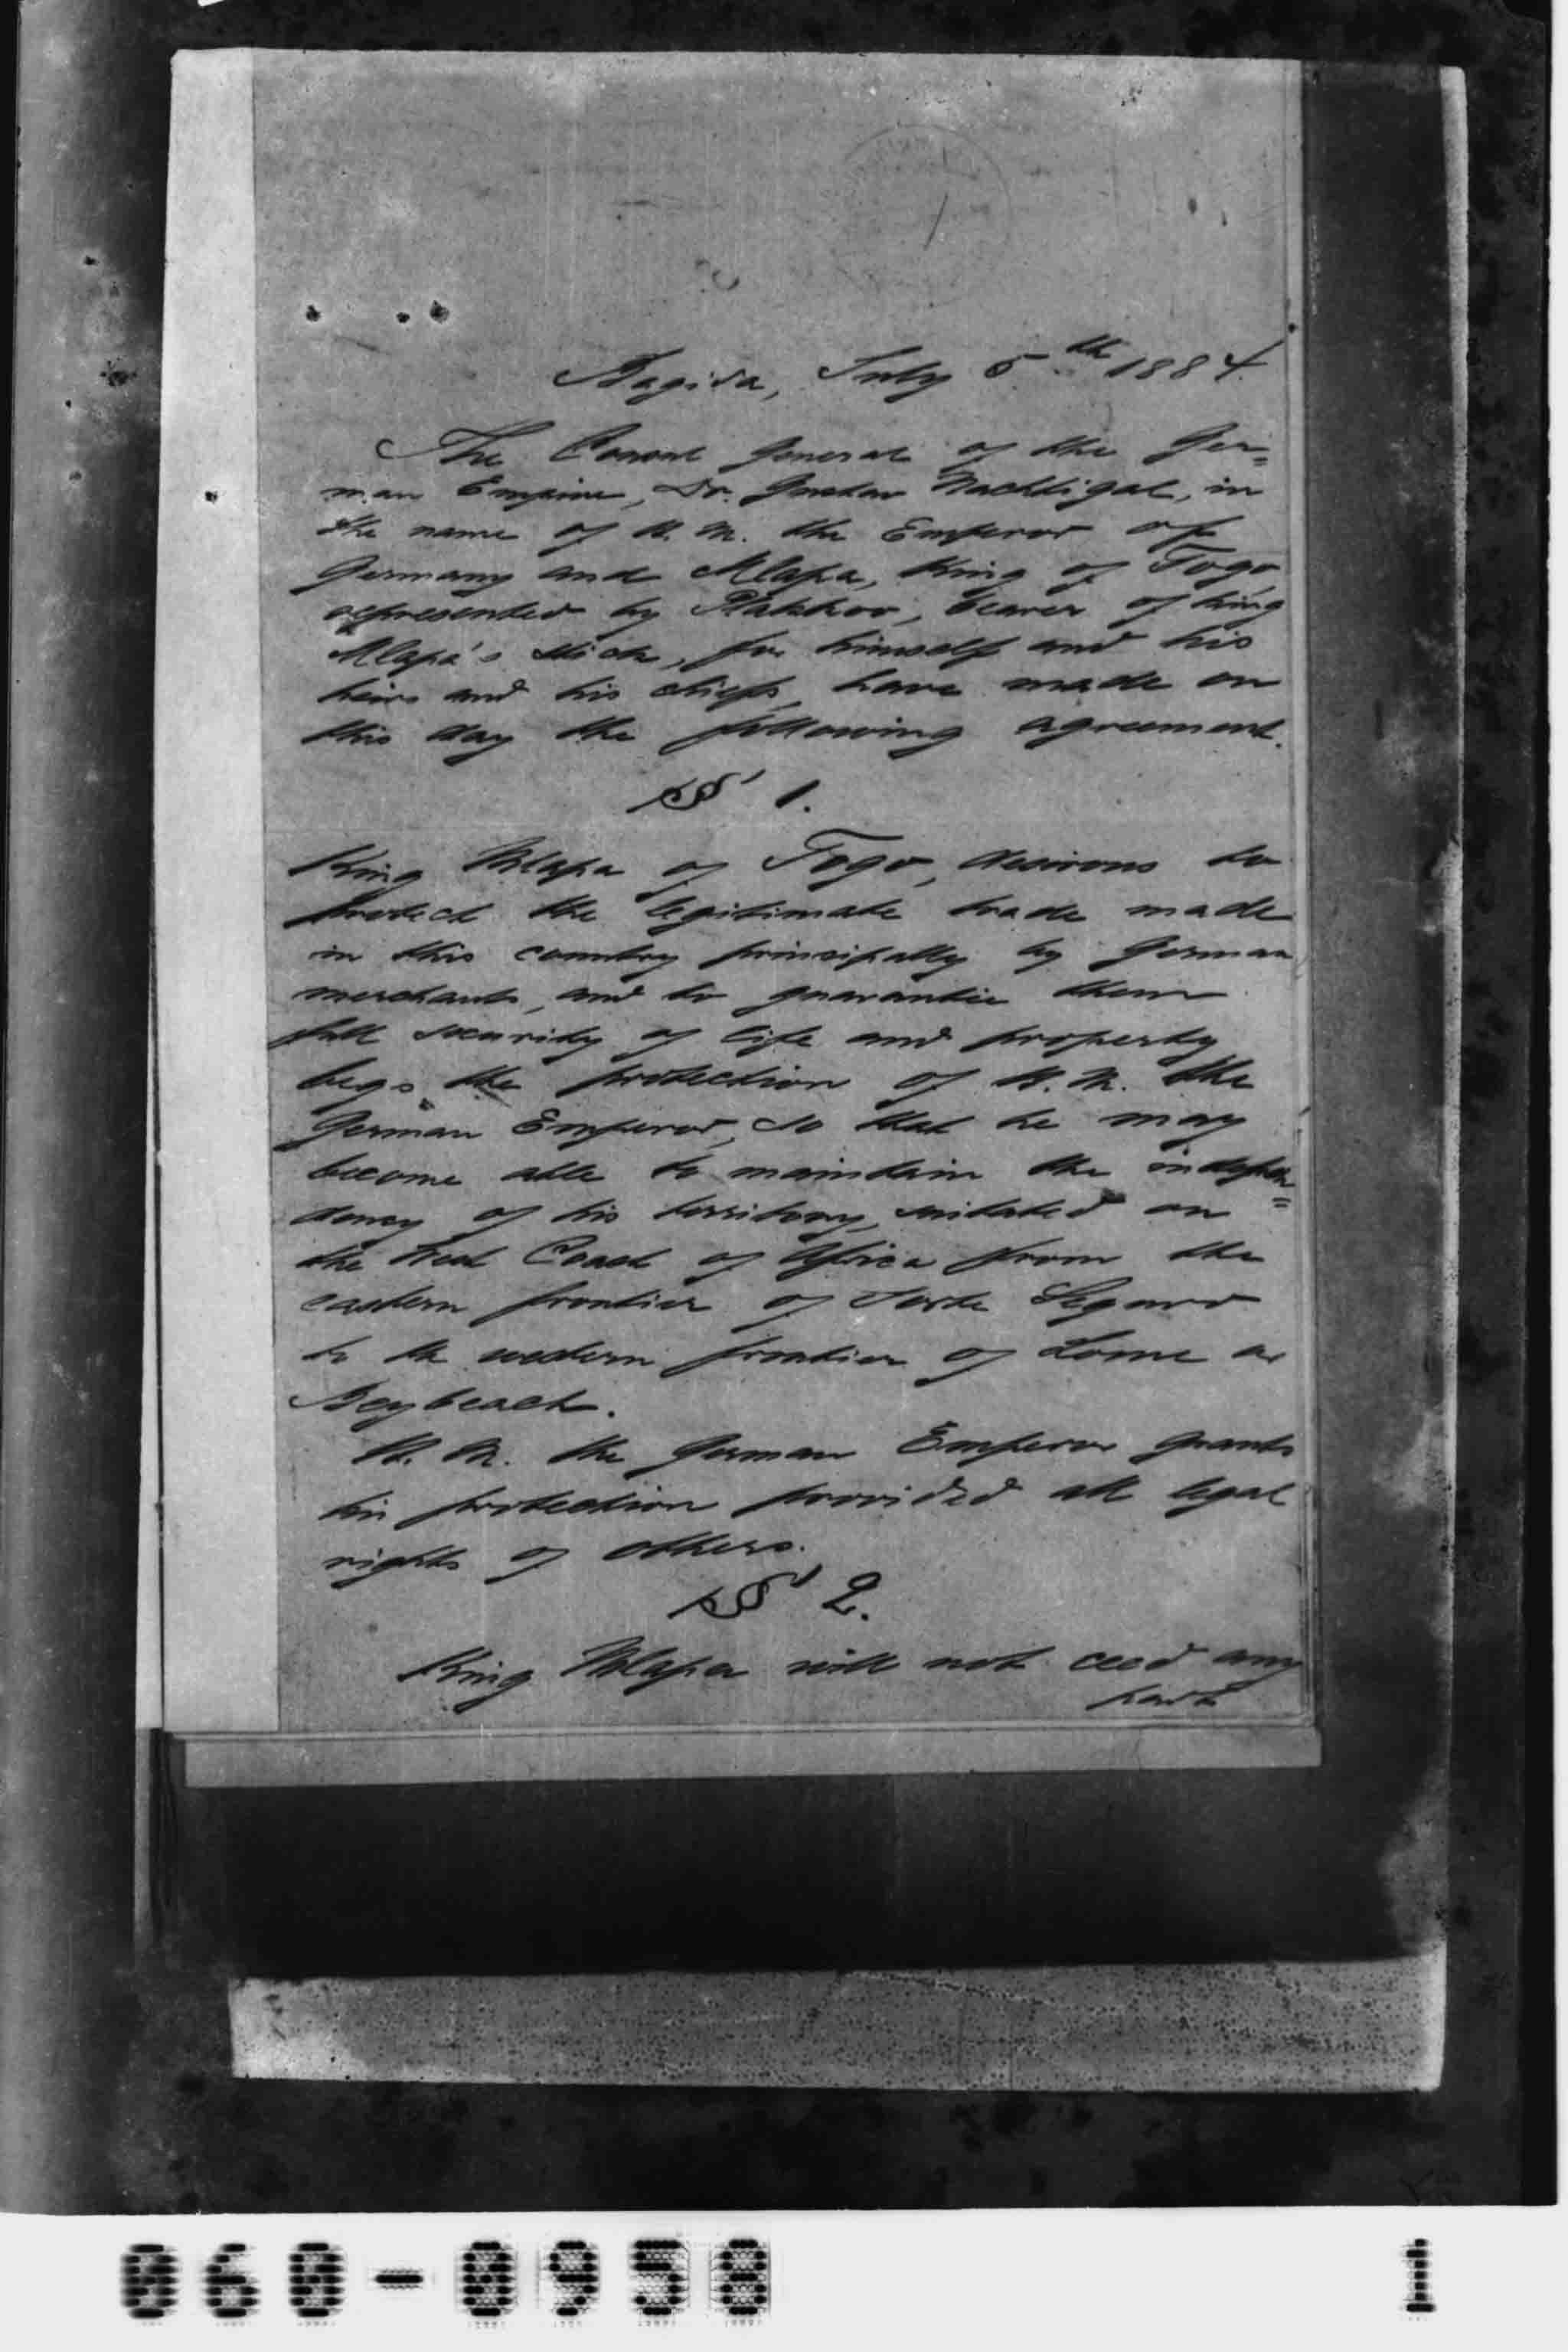 Bagida, July 5th 1884.
The Consul General of the Ger=
man Empire, Dr. Gustav Nachtigal, in
the name of H. M. the Emperor of
Germany and Mlapa, King of Togo,
represented by Plakkoo, bearer of king
Mlapa's stick, for himself and his
heirs and his chiefs, have made on
this day the following agreement.
§ 1.
King Mlapa of Togo, desirous to
protect the legitimate trade made
in this country principally by German
merchants, and to guarantie them
full security of life and property
begs the protection of H. M. the
German Emperor, so that he may
become able to maintain the indepen=
dency of his territory, situated on
the West Coast of Africa from the
eastern frontier of Porto Seguro
to the western frontier of Lome or
Beybeach.
H. M. the German Emperor grants
his protection provided all legal
rights of others.
§ 2.
King Mlapa will not ceed any
part
060-0958 1